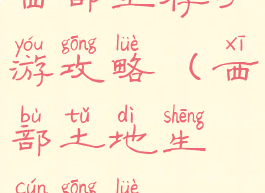 yóu gōng lüè xī
游攻略（西
bù tǔ dì shēng
部土地生
cún gōng lüè